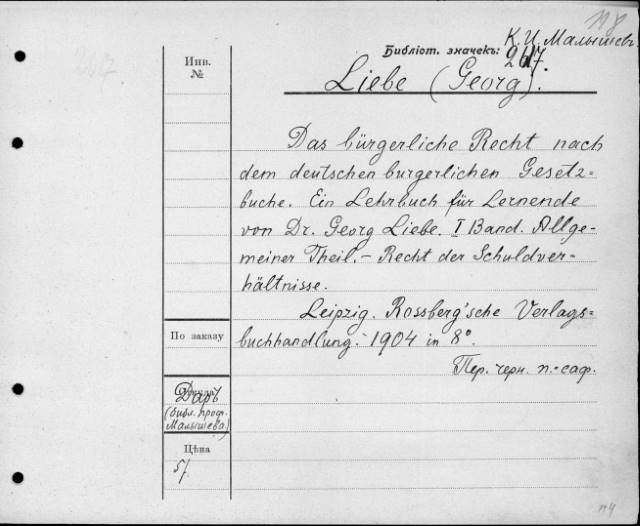 К. И. Малышевъ
Библіот. значекъ: 267.
Liebe (Georg).
Инв.
№
Das bürgerliche Recht nach
dem deutschen burgerlichen Gesetz-
buche. Ein Lehrbuch für Lernende
von Dr. Georg Liebe. I Band. Allge-
meiner Theil. — Recht der Schuldver-
hältnisse.
Leipzig. Rossberg'sche Verlags-
buchhandlung. 1904 in 8°.
Пер. черн. п.-саф.
По заказу
Откуда
Даръ
(библ. проф.
Малышева)
Цѣна